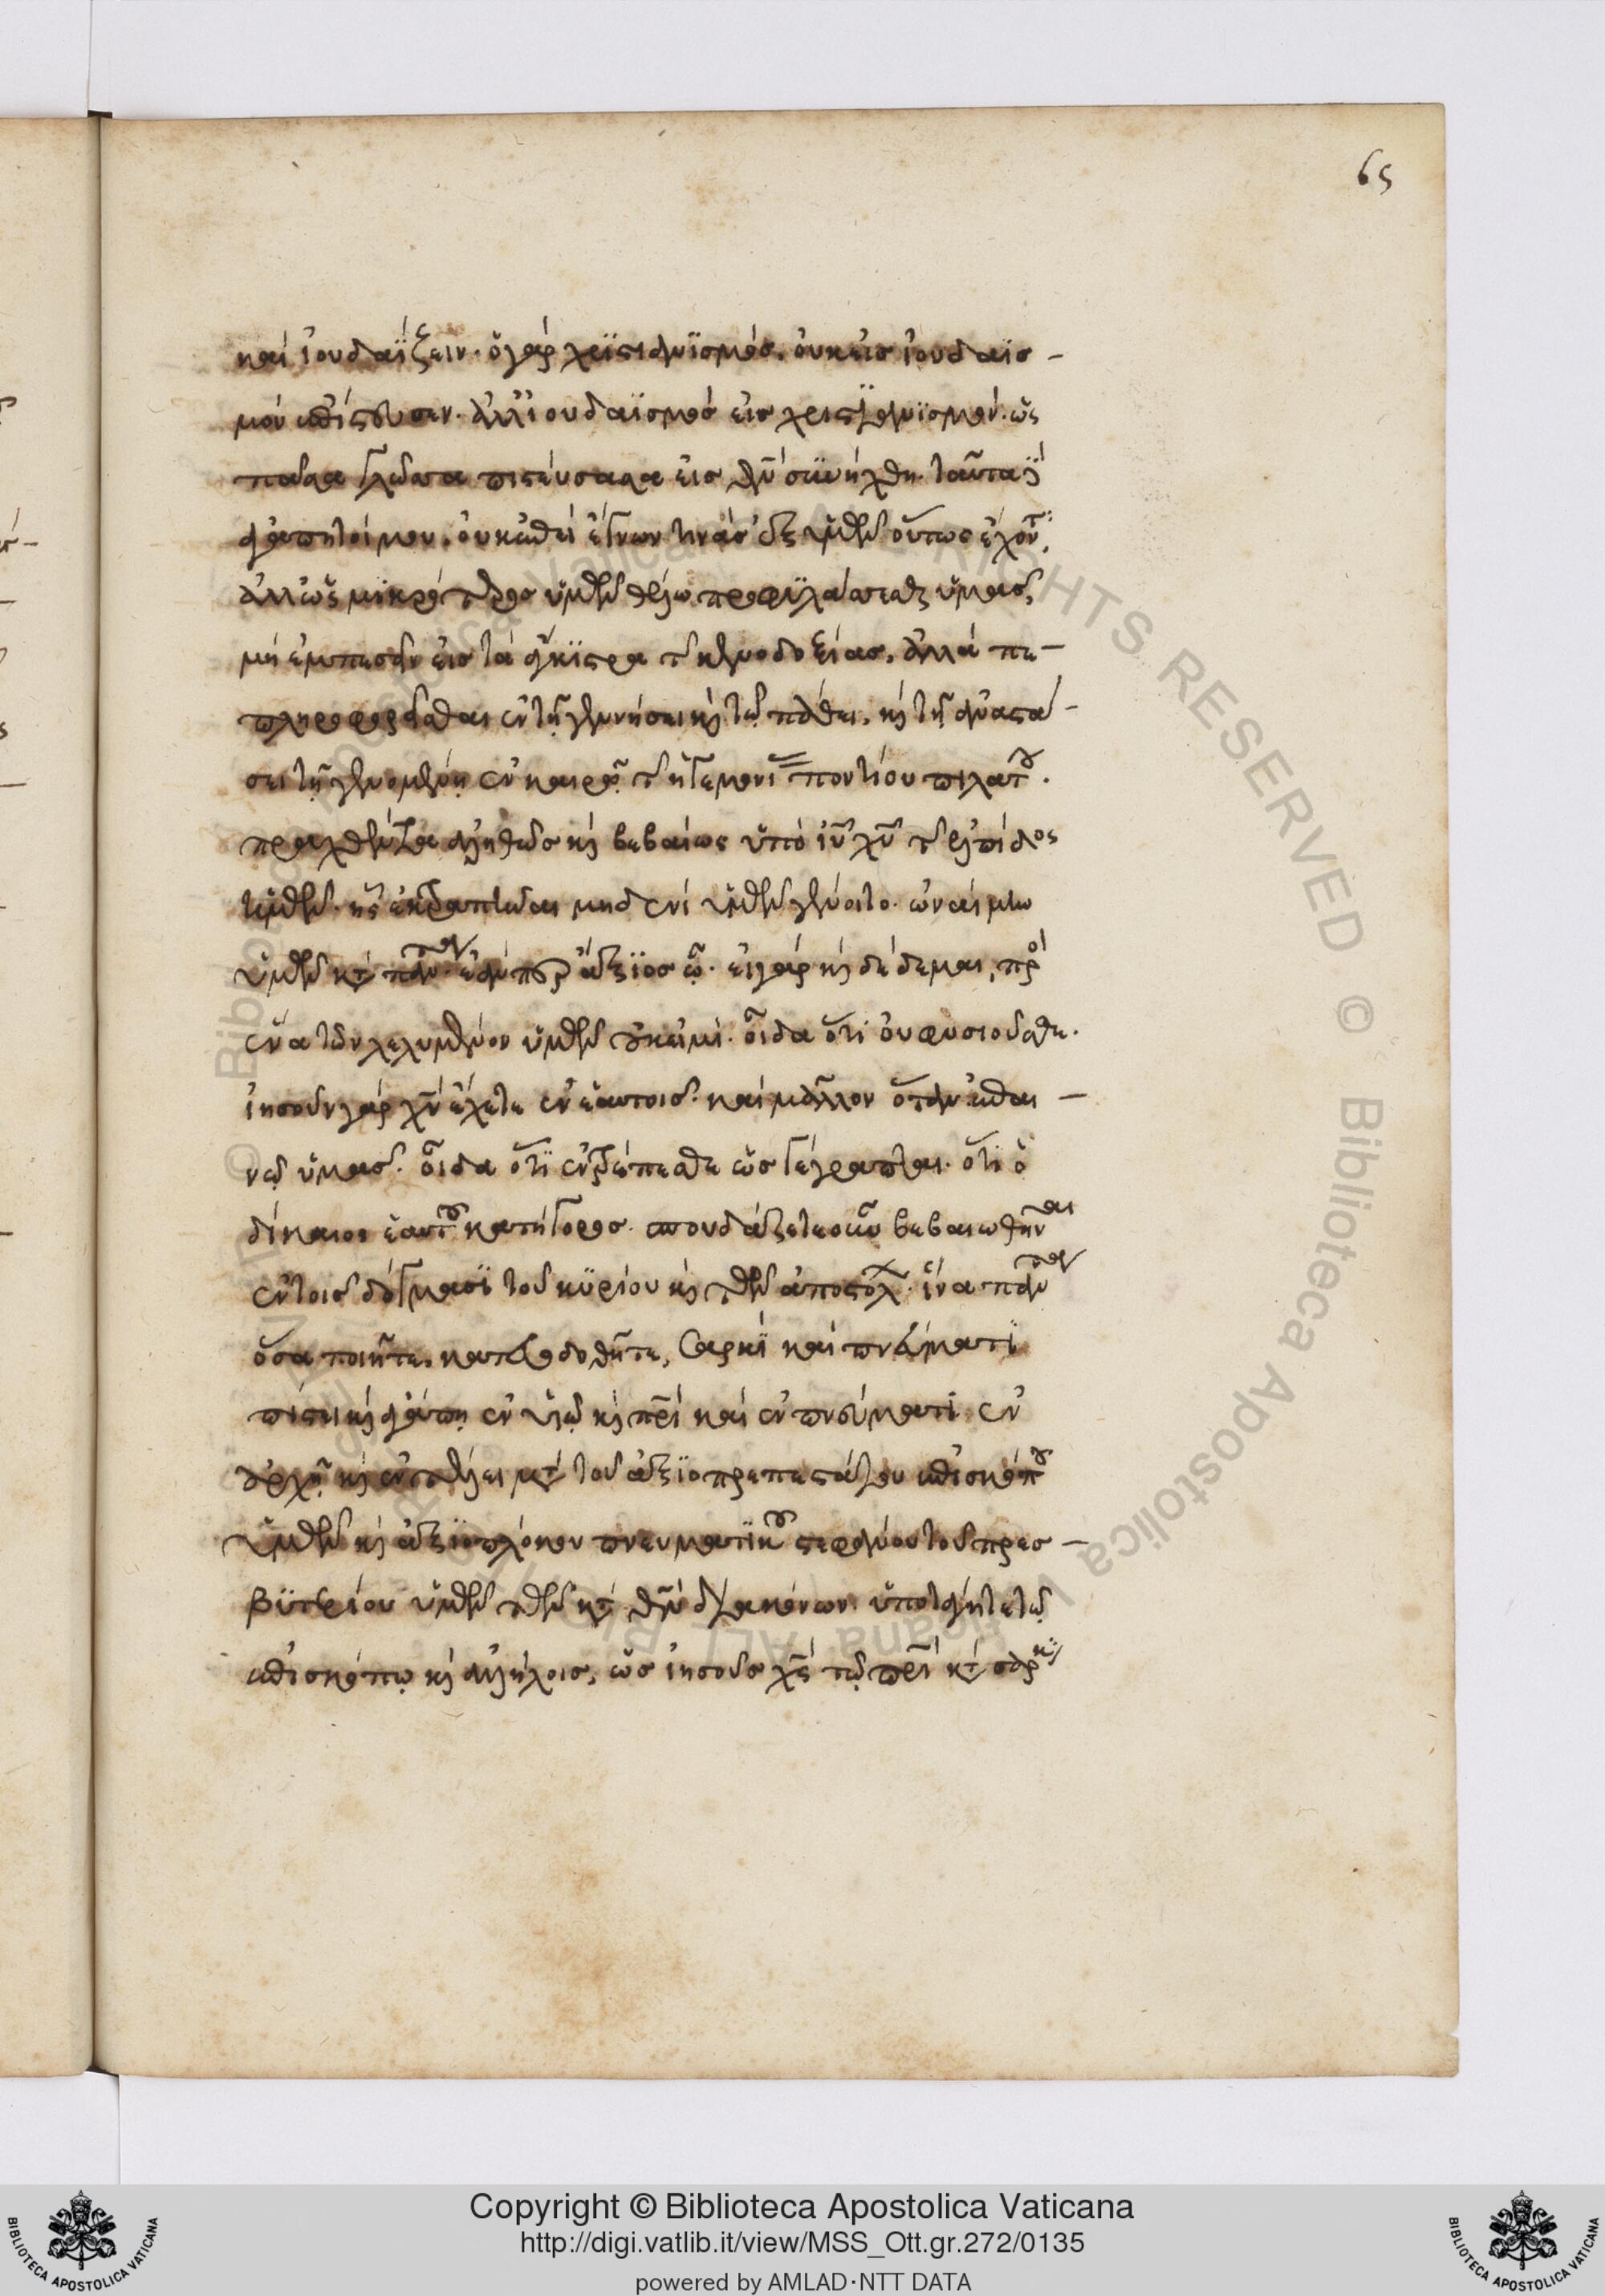 65
καὶ ἰουδαΐζειν. ὁ γὰρ χριστιανισμὸς, οὐκ εἰς ἰουδαϊσ-
μὸν ἐπίστευσεν. ἀλλ' ἰουδαϊσμὸς εἰς χριστιανισμόν. ὡς
πᾶσα γλῶσσα πιστεύσασα εἰς θν̄ συνήχθη. ταῦτα δὲ
ἀγαπητοί μου, οὐκ ἐπεὶ ἔγνων τινὰς ἐξ ὑμῶν οὕτως ἔχοντας,
ἀλλ' ὡς μικρότερος ὑμῶν θέλω προφυλάσσεσθαι ὑμᾶς,
μὴ ἐμπεσεῖν εἰς τὰ ἄγκιστρα τῆς κενοδοξίας, ἀλλὰ πε-
πληροφορεῖσθαι ἐν τῇ γεννήσει καὶ τῷ πάθει, καὶ τῇ ἀναστά-
σει τῇ γενομένῃ ἐν καιρῷ τῆς ἡγεμονίας ποντίου πιλάτου.
πραχθέντα ἀληθῶς καὶ βεβαίως ὑπὸ ιῡ χῡ τῆς ἐλπίδος
ἡμῶν. ἧς ἐκτραπῆναι μηδενὶ ὑμῶν γένοιτο. ὀναίμην
ὑμῶν κατὰ πάντα. ἐάνπερ ἄξιος ὦ. εἰ γὰρ καὶ δέδεμαι, πρὸς
ἕνα τῶν λελυμένων ὑμῶν οὔκ εἰμι. οἶδα ὅτι οὐ φυσιοῦσθε.
ἰησοῦν γὰρ χν̄ ἔχετε ἐν ἑαυτοῖς. καὶ μᾶλλον ὅταν ἐπαι-
νῶ ὑμᾶς. οἶδα ὅτι ἐντρέπεσθε ὡς γέγραπται. ὅτι ὁ
δίκαιος ἑαυτοῦ κατήγορος. σπουδάζετε οὖν βεβαιωθῆναι
ἐν τοῖς δόγμασι τοῦ κυρίου καὶ τῶν ἀποστόλων. ἵνα πάντα
ὅσα ποιῆτε, κατευοδοθῆτε, σαρκὶ καὶ πνεύματι
πίστει καὶ ἀγάπῃ ἐν υἱῷ καὶ πρ̄ὶ καὶ ἐν πνεύματι ἐν
ἀρχῇ καὶ ἐν τέλει μετὰ τοῦ ἀξιοπρεπεστάτου ἐπισκόπου
ὑμῶν καὶ ἀξιοπλόκου πνευματικοῦ στεφάνου τοῦ πρεσ-
βυτερίου ὑμῶν τῶν κατὰ θν̄ διακόνων. ὑποτάγητε τῷ
ἐπισκόπῳ καὶ ἀλλήλοις, ὡς ἰησοῦς χς̄ τῷ πρ̄ὶ κατὰ σάρκα
Copyright © Biblioteca Apostolica Vaticana
http://digi.vatlib.it/view/MSS_Ott.gr.272/0135
powered by AMLAD·NTT DATA